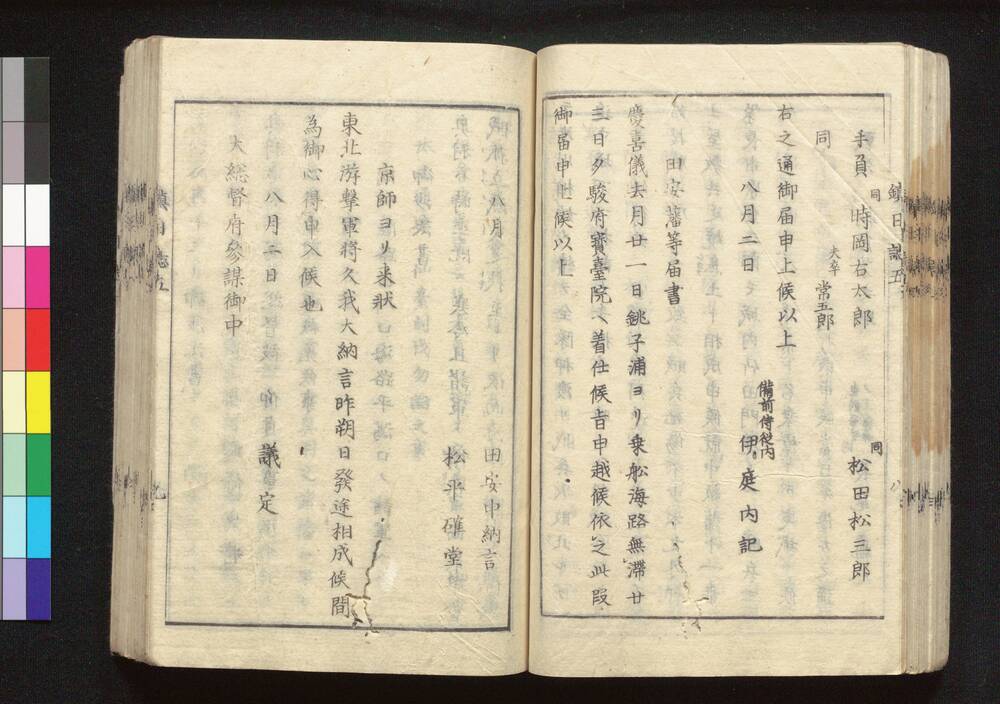 手負 同 時岡右太郎 同 松田松三郎
同 夫卒 常五郎
右之通御届申上候以上
八月二日 備前侍従内 伊庭内記
田安藩等届書
慶喜儀去月廿一日銚子浦ヨリ乗船海路無滞廿
三日夕駿府寳臺院へ着仕候旨申越候依之此段
御届申上候以上
八月 田安中納言
松平確堂
京師ヨリ来状
東北游撃軍将久我大納言昨朔日發途相成候間
為御心得申入候也
八月二日 議定
大総督府参謀御中
鎮日誌五